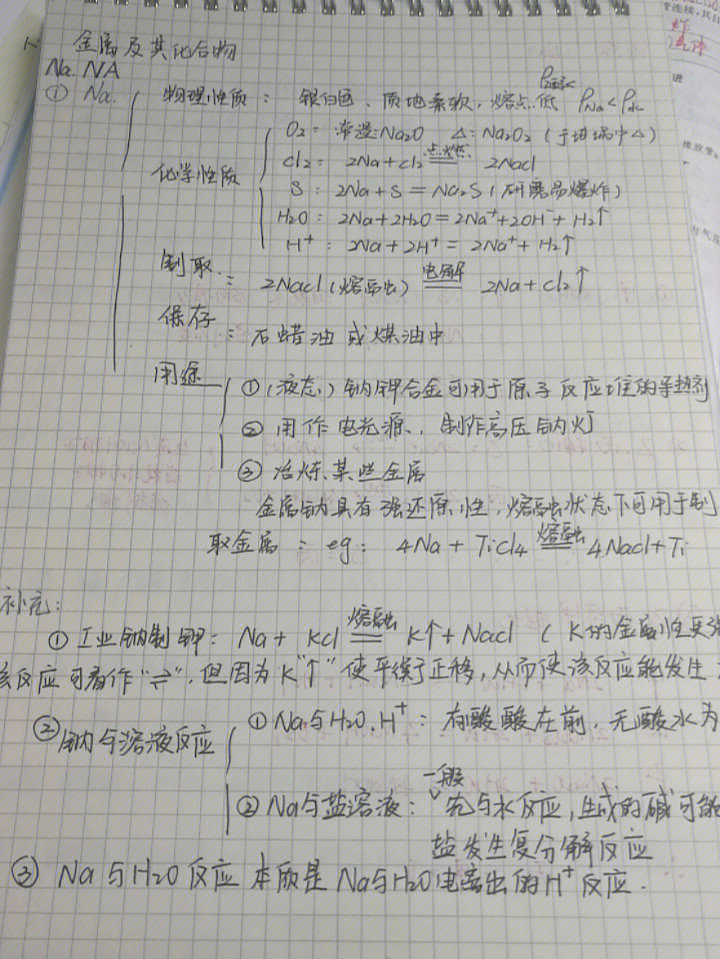 金属及其化合物
Na. NA
① Na. 物理性质: 银白色、质地柔软, 熔点.低 ρNa<ρ水
ρ煤油<
化学性质
O2: 常温:Na2O Δ:Na2O2 (于坩埚中Δ)
Cl2: 2Na+Cl2 点燃 2NaCl
S: 2Na+S=Na2S (研磨易爆炸)
H2O: 2Na+2H2O=2Na⁺+2OH⁻+H2↑
H⁺: 2Na+2H⁺=2Na⁺+H2↑
制取: 2NaCl(熔融) 电解 2Na+Cl2↑
保存: 石蜡油或煤油中
用途 ①(液态)钠钾合金可用于原子反应堆的导热剂
② 用作电光源, 制作高压钠灯
③ 冶炼某些金属
金属钠具有强还原性, 熔融状态下可用于制
取金属: eg: 4Na+TiCl4 熔融 4NaCl+Ti
补充:
① 工业钠制钾: Na+KCl 熔融 K↑+NaCl (K的金属性更强
该反应可看作"⇌", 但因为K"↑"使平衡正移, 从而使该反应能发生.
② 钠与溶液反应 ① Na与H2O.H⁺: 有酸酸在前, 无酸水为
② Na与盐溶液: 一般先与水反应, 生成的碱可能
盐发生复分解反应
③ Na与H2O反应本质是Na与H2O电离出的H⁺反应.